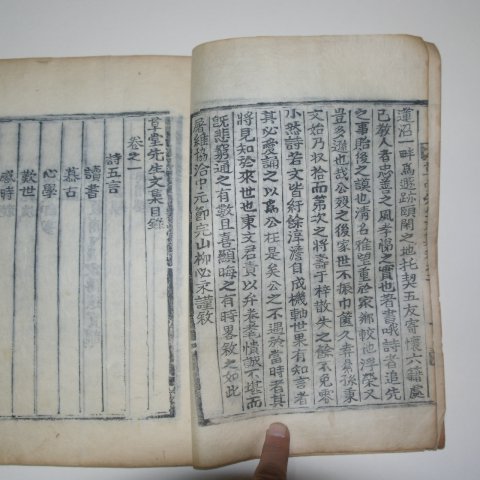 蓮沼一畔爲遯跡頤閑之地托契五友寄懷六籍處
己敎人者忠善之風孝悌之實也著書哦詩者追先
之事貽後之謨也淸名雅望重於家鄕較他浮榮又
豈多遜也哉公歿之後家世不振巾篋久弆
文始乃収拾而第次之將壽于梓散失之餘不免零
小然詩若文皆紆餘淳澹自成機軸世果有知言者
其必愛誦之以爲公在是矣公之不遇於當時者其
將見知於來世也東文君責以弁卷羣情誠不堪而
旣悲窮通之有數且喜顯晦之有時畧敘之如此
屠維協洽中元節完山柳必永謹敘
草堂先生文集目錄
卷之一
詩五言
讀書
慕古
心學
歎世
感時